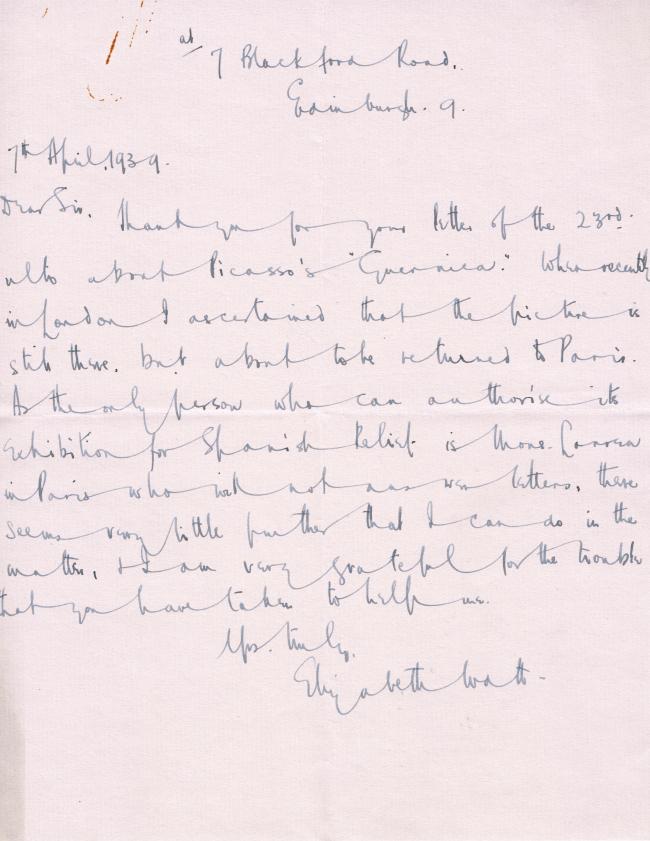 at
7 Blackford Road.
Edinburgh. 9.
7th April, 1939.
Dear Sir. Thank you for your letter of the 23rd.
ulto about Picasso's "Guernica." When recently
in London I ascertained that the picture is
still there, but about to be returned to Paris.
As the only person who can authorise its
exhibition for Spanish Relief is Mons. Correa
in Paris who will not answer letters, there
seems very little further that I can do in the
matter, & I am very grateful for the trouble
that you have taken to help me.
Yrs. truly,
Elizabeth Watt-